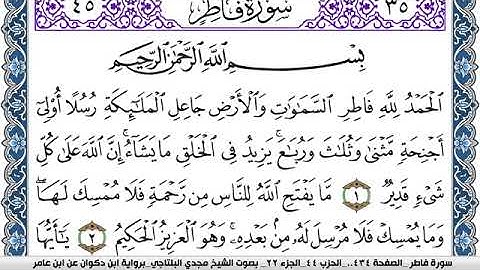 ٤٥ سُورَةُ فَاطِرٍ ٣٥
بِسْمِ اللَّهِ الرَّحْمَٰنِ الرَّحِيمِ
الْحَمْدُ لِلَّهِ فَاطِرِ السَّمَٰوَٰتِ وَالْأَرْضِ جَاعِلِ الْمَلَٰٓئِكَةِ رُسُلًا أُو۟لِىٓ
أَجْنِحَةٍ مَّثْنَىٰ وَثُلَٰثَ وَرُبَٰعَ ۚ يَزِيدُ فِى الْخَلْقِ مَا يَشَآءُ ۚ إِنَّ اللَّهَ عَلَىٰ كُلِّ
شَىْءٍ قَدِيرٌ ١ مَّا يَفْتَحِ اللَّهُ لِلنَّاسِ مِن رَّحْمَةٍ فَلَا مُمْسِكَ لَهَا ۖ
وَمَا يُمْسِكْ فَلَا مُرْسِلَ لَهُۥ مِنۢ بَعْدِهِۦ ۚ وَهُوَ الْعَزِيزُ الْحَكِيمُ ٢ يَٰٓأَيُّهَا
سورة فاطر _الصفحة ٤٣٤_ .. الحزب ٤٤_ الجزء ٢٢_ بصوت الشيخ مجدي البلتاجي_برواية ابن ذكوان عن ابن عامر